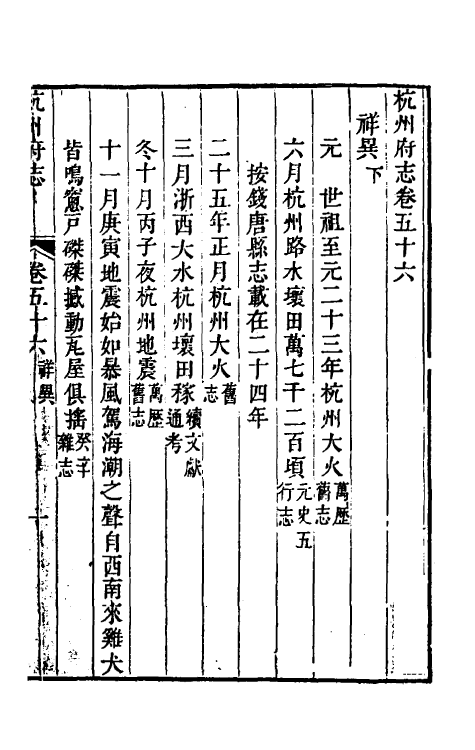 杭州府志卷五十六
祥異下
元　世祖至元二十三年杭州大火萬歷舊志
六月杭州路水壞田萬七千二百頃元史五行志
按錢唐縣志載在二十四年
二十五年正月杭州大火舊志
三月浙西大水杭州壞田稼續文獻通考
冬十月丙子夜杭州地震萬歷舊志
十一月庚寅地震始如暴風駕海潮之聲自西南來雞犬
皆鳴窻戸磔磔撼動瓦屋俱搖癸辛雜志
杭州府志
卷五十六 祥異
一